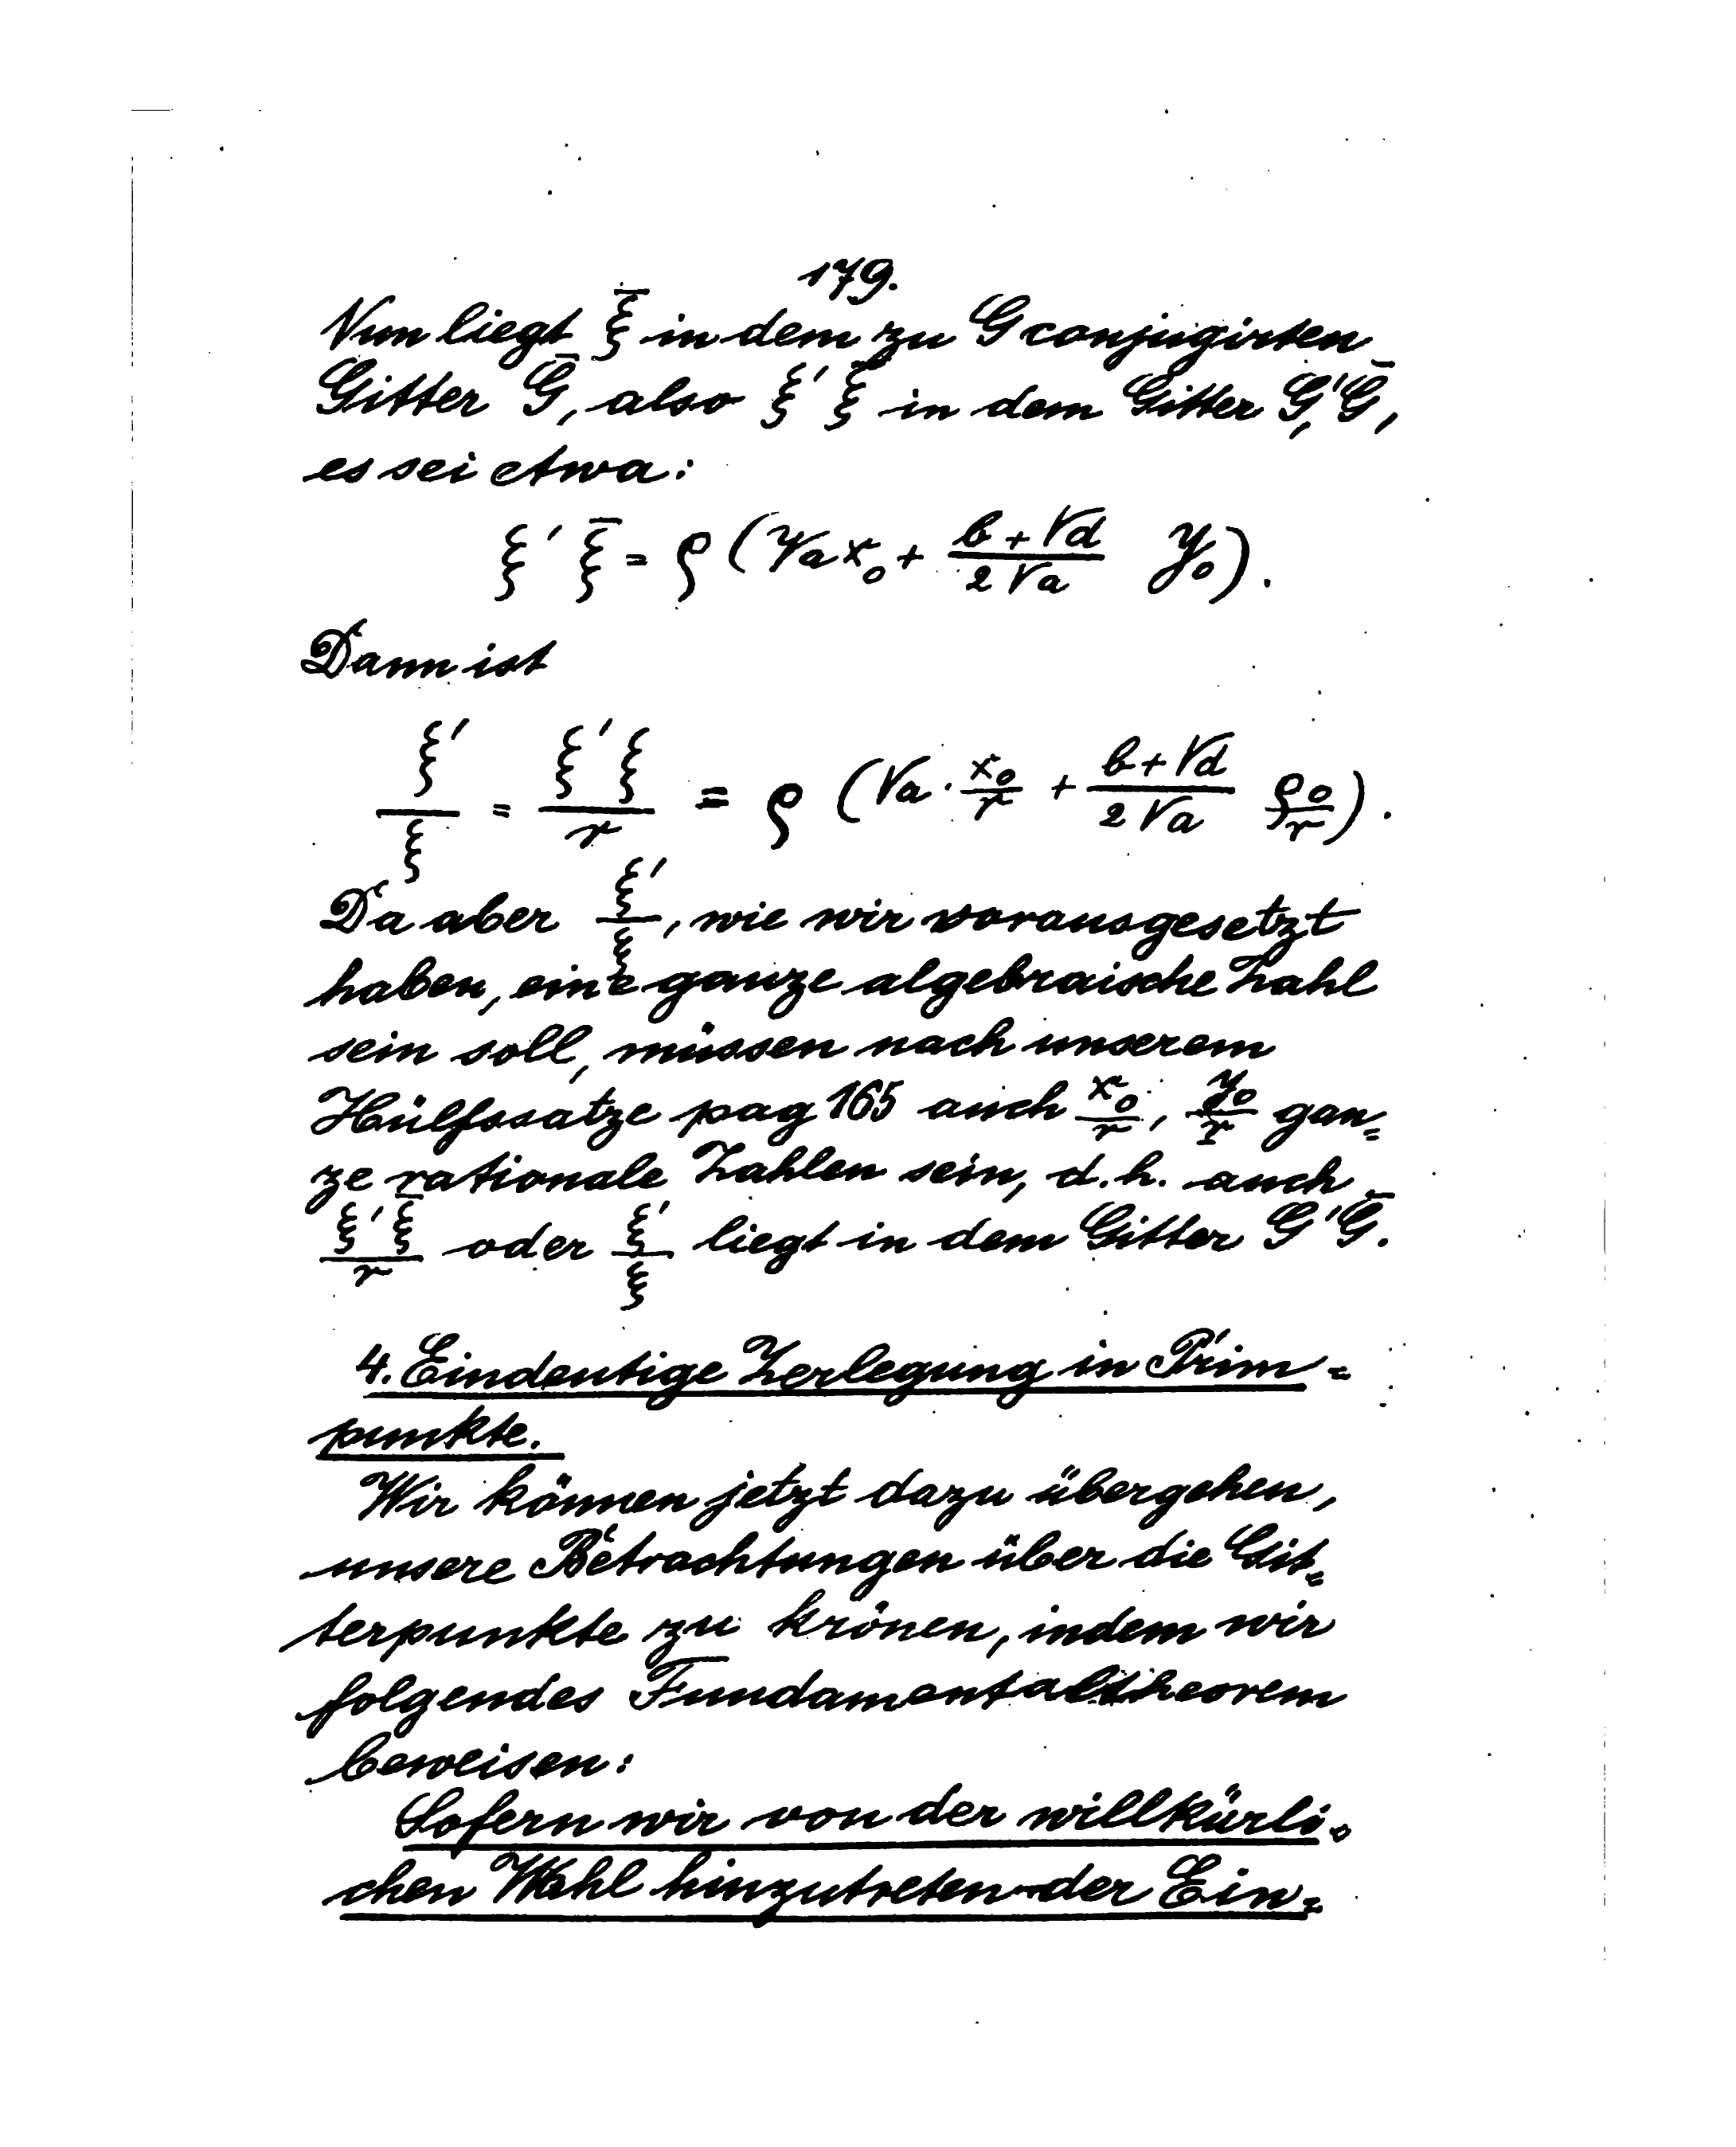 179.
Nun liegt ξ̄ in dem zu G conjugirten
Gitter Ḡ, also ξ' ξ̄ in dem Gitter G'Ḡ,
es sei etwa:
ξ' ξ̄ = ρ (√a x₀ + (b + √d)/(2 √a) y₀).
Dann ist
ξ'/ξ = ξ'ξ/r = ρ (√a · x₀/r + (b + √d)/(2 √a) ρ₀/r).
Da aber ξ'/ξ, wie wir vorausgesetzt
haben, eine ganze algebraische Zahl
sein soll, müssen nach unserem
Hülfssatze pag 165 auch x₀/r, y₀/r gan=
ze rationale Zahlen sein, d.h. auch
ξ'ξ̄/r oder ξ'/ξ liegt in dem Gitter G'Ḡ.
4. Eindeutige Zerlegung in Prim=
punkte.
Wir können jetzt dazu übergehen,
unsere Betrachtungen über die Git=
terpunkte zu krönen, indem wir
folgendes Fundamentaltheorem
beweisen:
Sofern wir von der willkürli=
chen Wahl hinzutretender Ein=